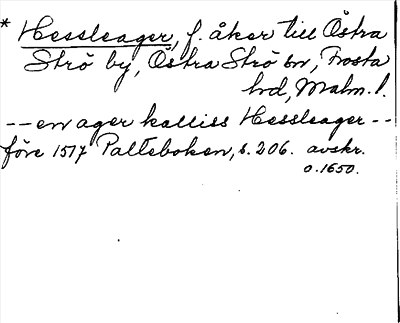 * Hessleager, f. åker till Östra
Strö by, Östra Strö sn, Frosta
hd, Malm. l.
-- en ager kalliss Hessleager --
före 1517 Palteboken, s. 206. avskr.
o. 1650.